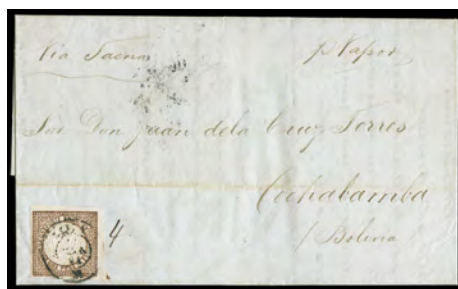 Via Tacna
p. Vapor
Sor Don Juan dela Cruz Torres
Cochabamba
/ Bolivia
4